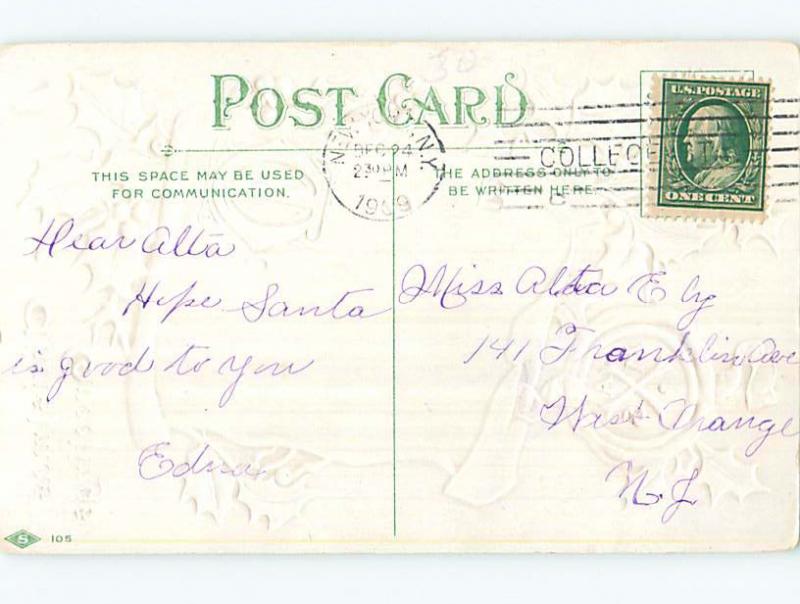 POST CARD
THIS SPACE MAY BE USED
FOR COMMUNICATION.
THE ADDRESS ONLY TO
BE WRITTEN HERE.
NEW YORK, N.Y.
DEC 24
230 PM
1909
COLLEGE ST
U.S. POSTAGE
ONE CENT
Dear Alta
Hope Santa
is good to you
Edna
Miss Alta Ely
141 Franklin Ave
West Orange
N.J.
S 105